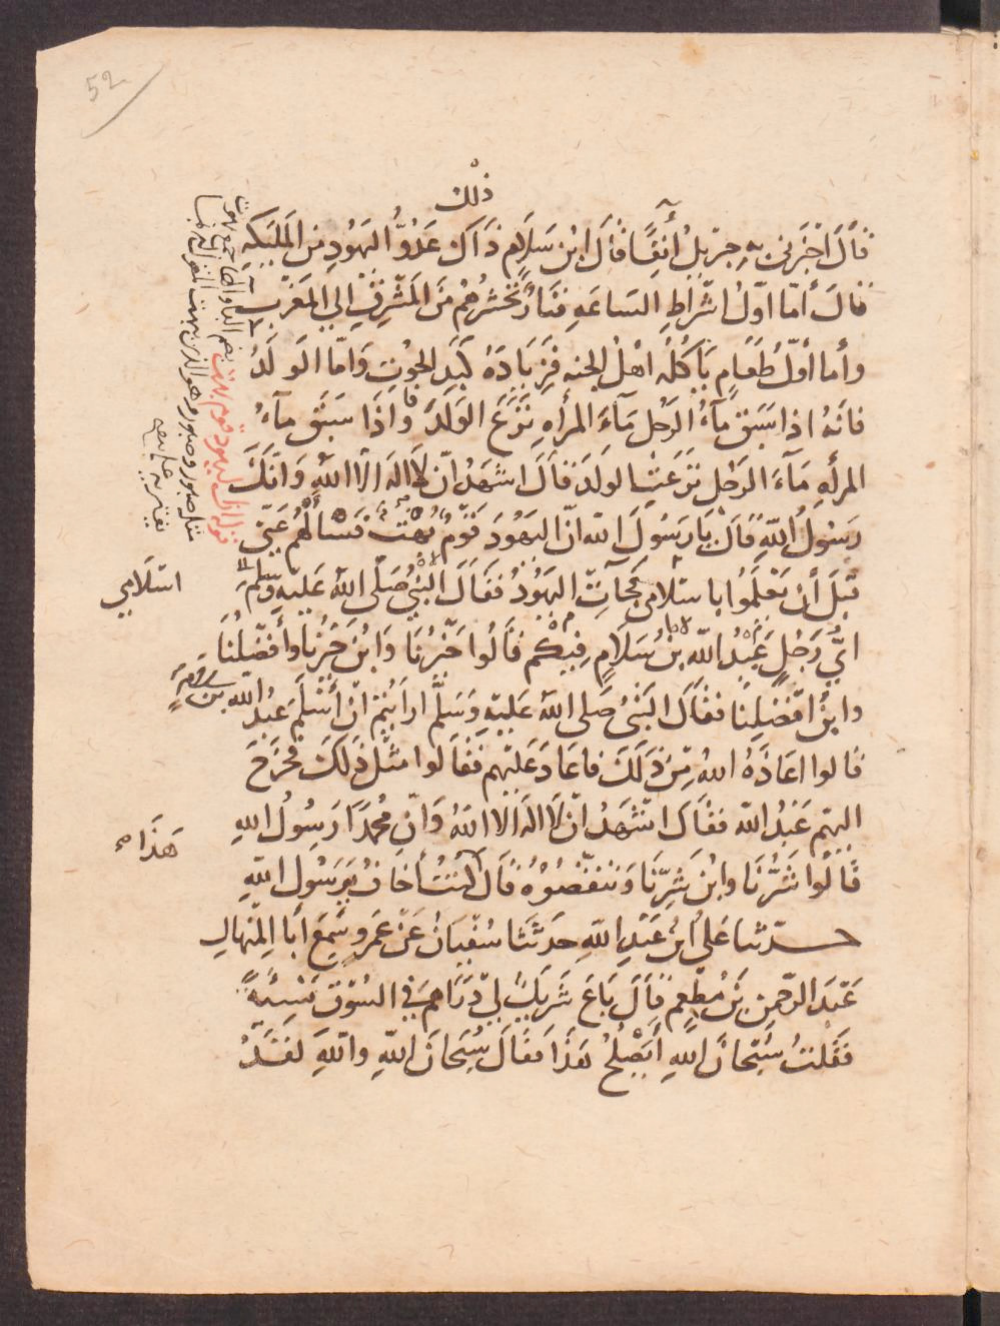 52
ذلك
قَالَ اخْبَرَنى بِهِ جِبْرِيلُ آنِفًا قَالَ ابْن سَلَامٍ ذَاكَ عَدُوُّ اليَهُودِ مِنَ المَلَئِكَةِ
قالَ أمّا اوّلُ اشْرَاطِ السَاعَةِ فَنَارٌ تَحْشُرُهُمْ مِنَ المَشْرِقِ الى المَغْرِبِ
وأما أوّلُ طَعَامٍ يَأكُلُهُ اهْلُ الجنة فَزِيَادَةُ كَبِدِ الحوُتِ وَامّا الوَلَدُ
فانّهُ اذا سَبَقَ مآءُ الرَجل مَآءَ المرأهِ نَزَعَ الوَلَدَ واذَا سَبَقَ مآءُ
المرأهِ مَآءَ الرَجُلِ نَزَعَتْ الولَدَ قَالَ اشهَدُ انّ لَا الهَ الّا اللهُ وَانّكَ
رَسُولُ اللهِ قَالَ يَا رَسُولَ الله انّ اليَهُودَ قَوْمٌ بُهُتٌ فَسَألْهُمْ عَنّى
قَبْلَ أن يَعْلَمُوا باسلامى فَجآءَتِ اليَهُودُ فَقَالَ النَبيُّ صَلّى اللهُ عَلَيهِ وسلم
اسْلَامِي
ايُّ رَجُلٍ عَبْدُ اللهِ بنُ سَلَامٍ فِيكُم قَالُوا خَيْرُنَا وَابْنُ خَيْرِنَا وَأفْضَلُنَا
وابنُ افْضَلِنَا فَقَالَ النَبىُّ صَلى اللهُ عَلَيهِ وَسَلّمَ ارَأيتُم انْ أسْلَمَ عَبْدُ الله بن سلام
قالوا اعَاذَهُ اللهُ مِنْ ذَلَكَ فاعَادَ عَلَيْهِم فَقَالوا مثْلَ ذَلكَ فخَرَجَ
اليهِم عَبْدُ اللهِ فقَالَ اشْهَدُ انْ لَا الهَ الا اللهُ وَانّ مُحَمَّدًا رَسُولُ اللهِ
قَالُوا شَرُّنَا وابْن شَرِّنَا وَتَنَقّصُوهُ قَالَ كُنْتُ أخَافُ يَرَسُولَ اللهِ
هَذَا
حدثنا عَلي ابْنُ عَبْدِ اللهِ حدَثَنَا سُفْيَانُ عَنْ عَمرو سَمِعَ أبَا المِنْهَالِ
عَبْدَ الرّحمن بْنَ مُطْعِم قَالَ بَاعَ شَرِيكٌ لِي دَرَاهِمَ فى السُوْقِ نَسِيئَةً
فَقُلْتُ سُبْحَانَ اللهِ أيَصْلُحُ هَذَا فقَالَ سُبْحَانَ اللهِ واللهِ لَقَدْ
قوله ان اليهود قوم بهت بضم الباء والهاء جمع بهوت
مثل صبور وصبر وهو الذى يبهت